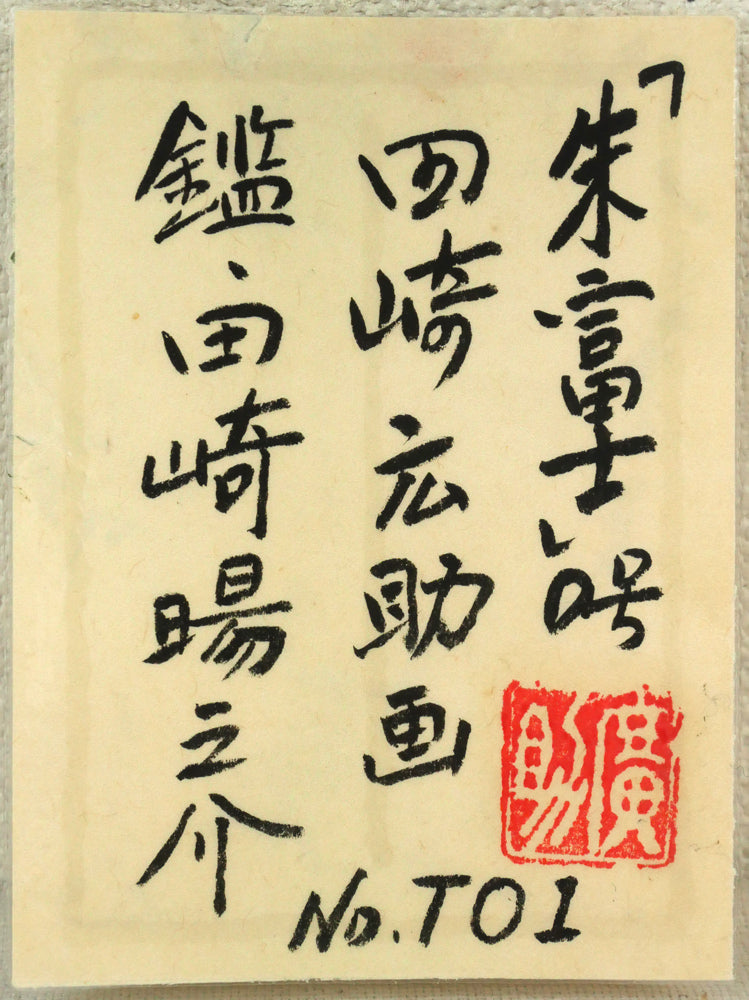 「朱富士」0号
田崎広助画
鑑・田崎暘之介
廣助
No.T01